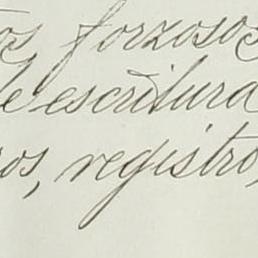 os forzosos
de escritura
ros, registro,